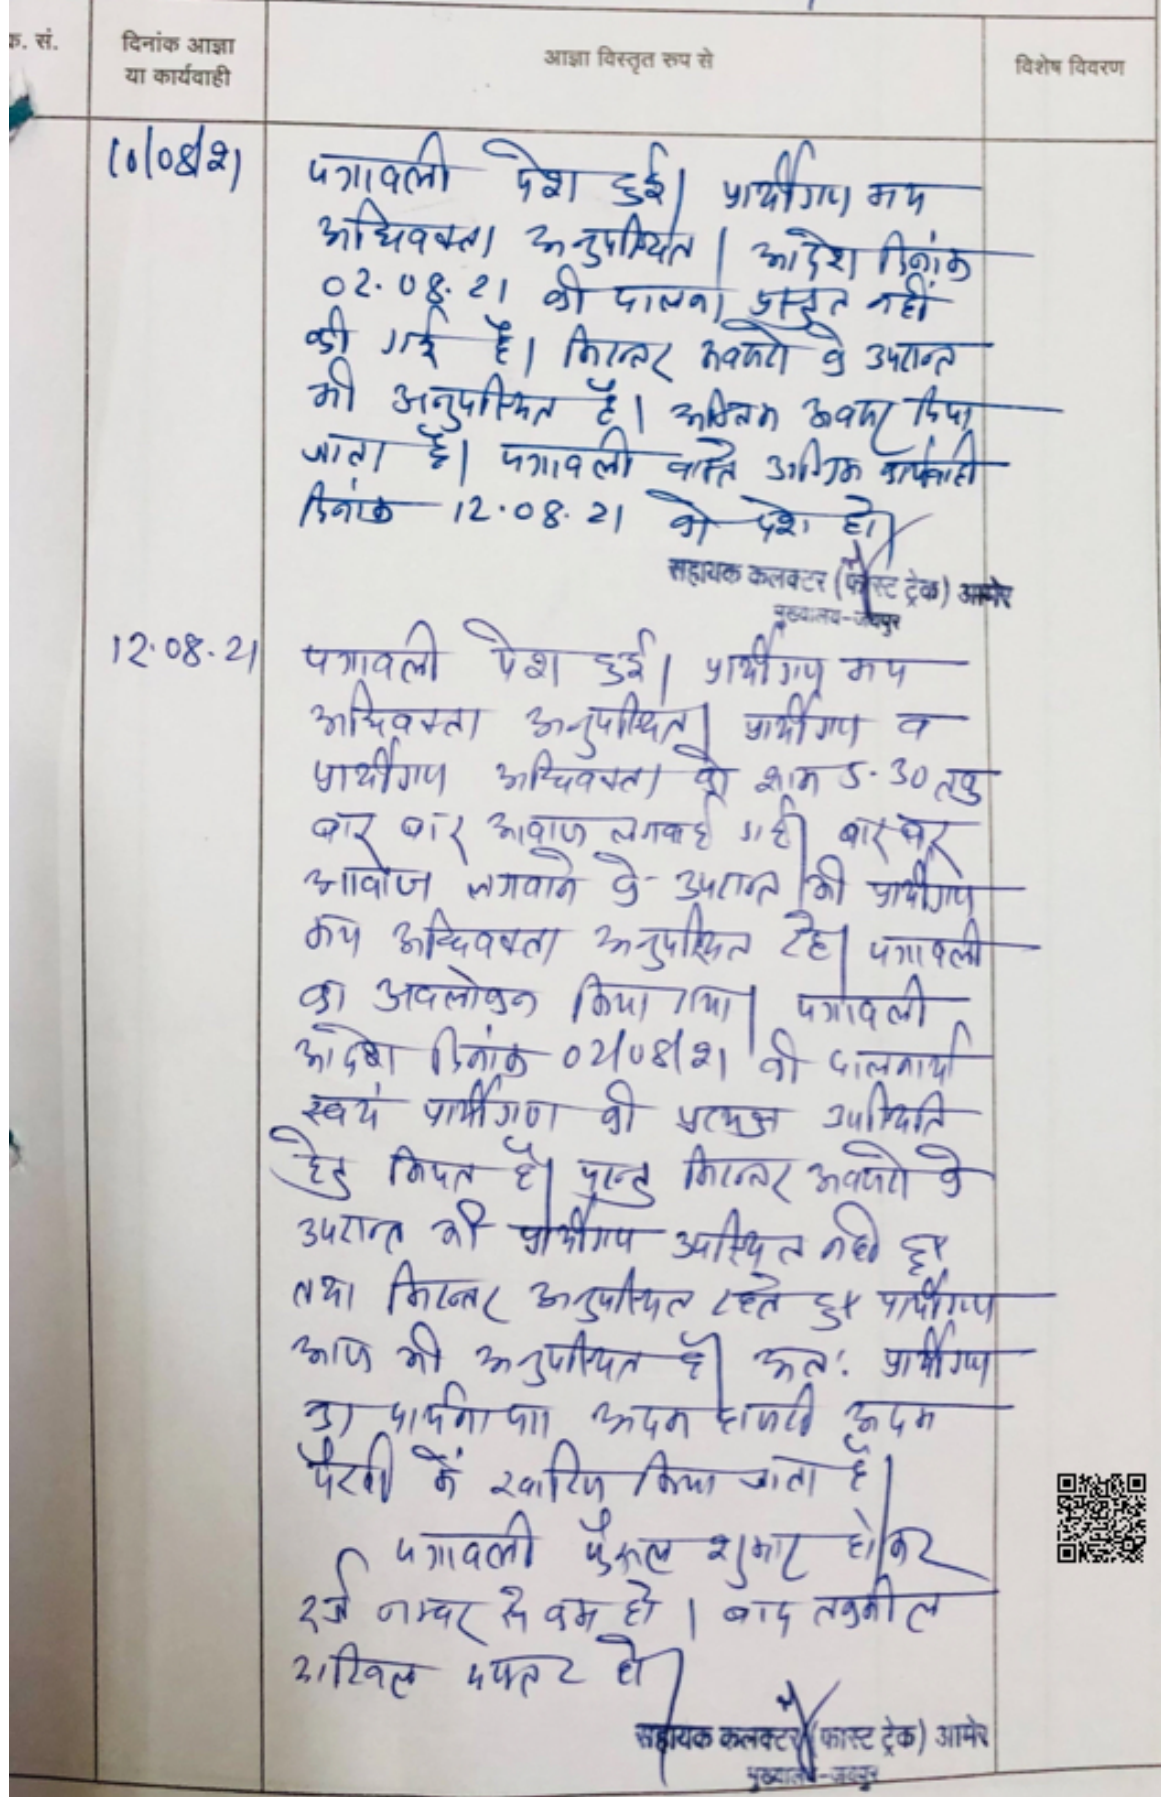 क. सं.
दिनांक आज्ञा
या कार्यवाही
आज्ञा विस्तृत रूप से
विशेष विवरण
10/08/21
पत्रावली पेश हुई। प्रार्थीगण मय
अधिवक्ता अनुपस्थित। आदेश दिनांक
02.08.21 की पालना प्रस्तुत नहीं
की गई है। निरन्तर अवसरो के उपरान्त
भी अनुपस्थित है। अन्तिम अवसर दिया
जाता है। पत्रावली वास्ते अग्रिम कार्यवाही
दिनांक 12.08.21 को पेश हो।
सहायक कलक्टर (फास्ट ट्रेक) आमेर
मुख्यालय-जयपुर
12.08.21
पत्रावली पेश हुई। प्रार्थीगण मय
अधिवक्ता अनुपस्थित। प्रार्थीगण व
प्रार्थीगण अधिवक्ता को शाम 5.30 तक
बार बार आवाज लगवाई गई। बार बार
आवाज लगवाने के उपरान्त भी प्रार्थीगण
मय अधिवक्ता अनुपस्थित रहे। पत्रावली
का अवलोकन किया गया। पत्रावली
आदेश दिनांक 02/08/21 की पालनार्थ
स्वयं प्रार्थीगण की प्रत्यक्ष उपस्थिति
हेतु नियत है। परन्तु निरन्तर अवसरो के
उपरान्त भी प्रार्थीगण उपस्थित नही हुए
तथा निरन्तर अनुपस्थित रहते हुए प्रार्थीगण
आज भी अनुपस्थित है। अतः प्रार्थीगण
का प्रार्थना पत्र अदम हाजरी अदम
पैरवी में खारिज किया जाता है।
पत्रावली फैसल शुमार होकर
दर्ज नम्बर से कम हो। बाद तकमील
दाखिल दफ्तर हो।
सहायक कलक्टर (फास्ट ट्रेक) आमेर
मुख्यालय-जयपुर